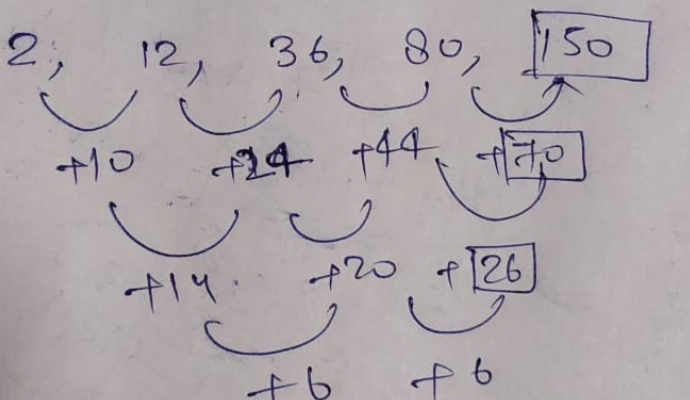 2, 12, 36, 80, 150
+10 +24 +44 +70
+14 +20 +26
+6 +6